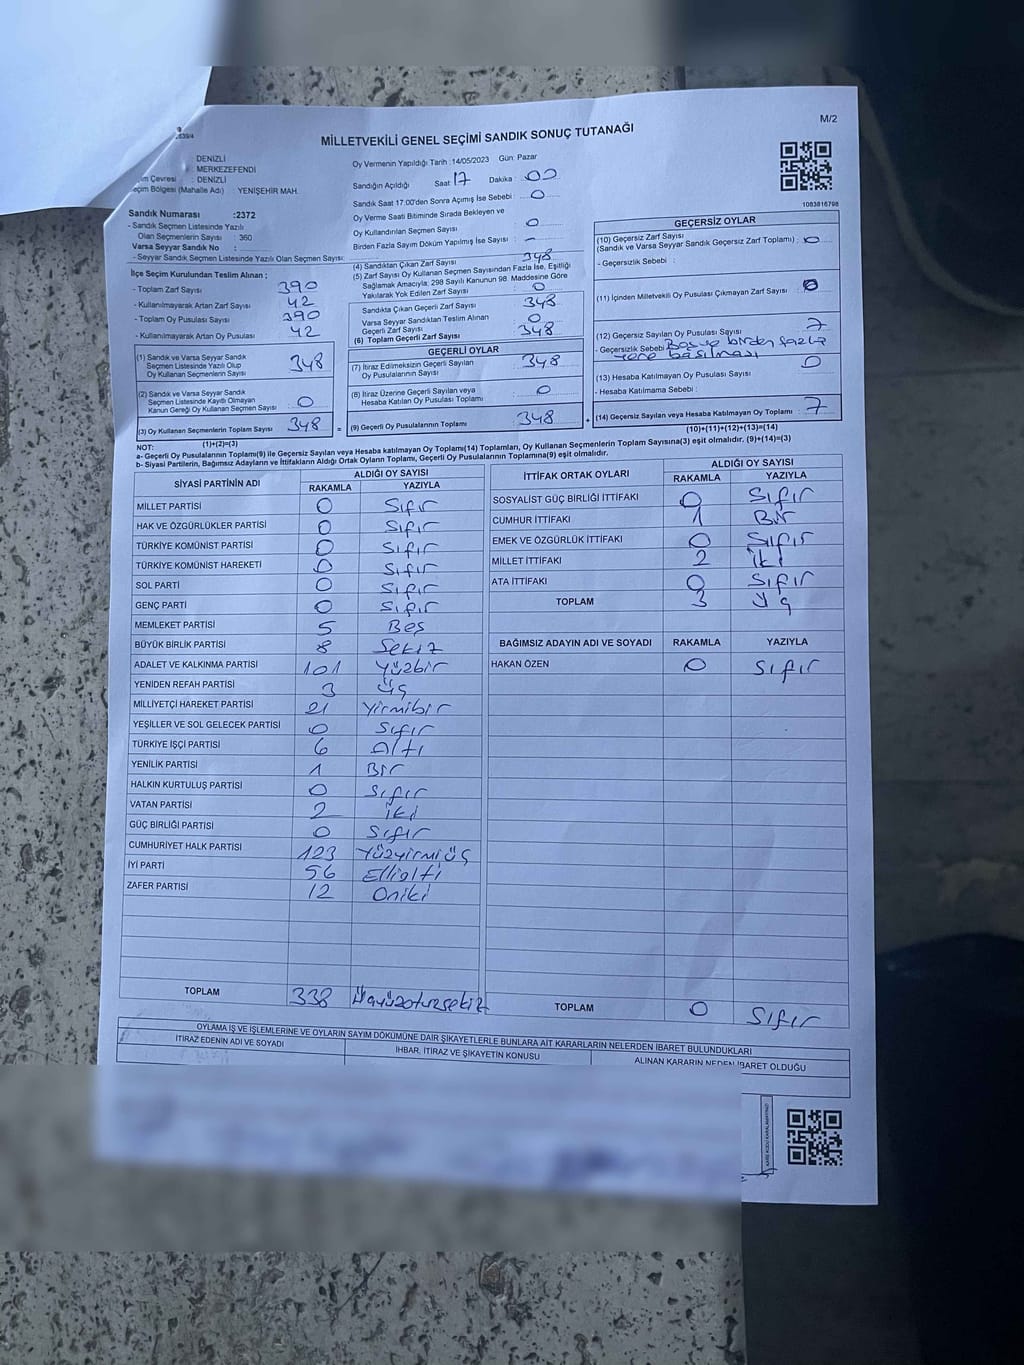 M/2
MİLLETVEKİLİ GENEL SEÇİMİ SANDIK SONUÇ TUTANAĞI
: DENİZLİ
: MERKEZEFENDİ
Çevresi : DENİZLİ
Bölgesi (Mahalle Adı) : YENİŞEHİR MAH.
Oy Vermenin Yapıldığı Tarih : 14/05/2023 Gün: Pazar
Sandığın Açıldığı Saat 17 Dakika : 00
Sandık Saat 17:00'den Sonra Açımış İse Sebebi : 0
Oy Verme Saati Bitiminde Sırada Bekleyen ve
Oy Kullandırılan Seçmen Sayısı : 0
Birden Fazla Sayım Döküm Yapılmış İse Sayısı : -
1083816798
Sandık Numarası :2372
- Sandık Seçmen Listesinde Yazılı
Olan Seçmenlerin Sayısı : 360
Varsa Seyyar Sandık No :
- Seyyar Sandık Seçmen Listesinde Yazılı Olan Seçmen Sayısı:
İlçe Seçim Kurulundan Teslim Alınan ;
- Toplam Zarf Sayısı : 390
- Kullanılmayarak Artan Zarf Sayısı : 42
- Toplam Oy Pusulası Sayısı : 390
- Kullanılmayarak Artan Oy Pusulası : 42
(1) Sandık ve Varsa Seyyar Sandık
Seçmen Listesinde Yazılı Olup
Oy Kullanan Seçmenlerin Sayısı : 348
(2) Sandık ve Varsa Seyyar Sandık
Seçmen Listesinde Kaydı Olmayan
Kanun Gereği Oy Kullanan Seçmen Sayısı : 0
(3) Oy Kullanan Seçmenlerin Toplam Sayısı : 348
(1)+(2)=(3)
(4) Sandıktan Çıkan Zarf Sayısı : 348
(5) Zarf Sayısı Oy Kullanan Seçmen Sayısından Fazla İse, Eşitliği
Sağlamak Amacıyla; 298 Sayılı Kanunun 98. Maddesine Göre
Yakılarak Yok Edilen Zarf Sayısı : 0
Sandıkta Çıkan Geçerli Zarf Sayısı : 348
Varsa Seyyar Sandıktan Teslim Alınan
Geçerli Zarf Sayısı : 0
(6) Toplam Geçerli Zarf Sayısı : 348
GEÇERLİ OYLAR
(7) İtiraz Edilmeksizin Geçerli Sayılan
Oy Pusulalarının Sayısı : 348
(8) İtiraz Üzerine Geçerli Sayılan veya
Hesaba Katılan Oy Pusulası Toplamı : 0
= (9) Geçerli Oy Pusulalarının Toplamı : 348 +
GEÇERSİZ OYLAR
(10) Geçersiz Zarf Sayısı
(Sandık ve Varsa Seyyar Sandık Geçersiz Zarf Toplamı) : 0
- Geçersizlik Sebebi :
(11) İçinden Milletvekili Oy Pusulası Çıkmayan Zarf Sayısı : 0
(12) Geçersiz Sayılan Oy Pusulası Sayısı : 7
- Geçersizlik Sebebi : Boş ve birden fazla
yere basılması
(13) Hesaba Katılmayan Oy Pusulası Sayısı : 0
- Hesaba Katılmama Sebebi :
(14) Geçersiz Sayılan veya Hesaba Katılmayan Oy Toplamı : 7
(10)+(11)+(12)+(13)=(14)
NOT:
a- Geçerli Oy Pusulasının Toplamı(9) ile Geçersiz Sayılan veya Hesaba Katılmayan Oy Toplamı(14) Toplamları, Oy Kullanan Seçmenlerin Toplam Sayısına(3) eşit olmalıdır. (9)+(14)=(3)
b- Siyasi Partilerin, Bağımsız Adayların ve İttifakların Aldığı Ortak Oyların Toplamı, Geçerli Oy Pusulalarının Toplamına(9) eşit olmalıdır.
SİYASİ PARTİNİN ADI ALDIĞI OY SAYISI
RAKAMLA YAZIYLA
MİLLET PARTİSİ 0 Sıfır
HAK VE ÖZGÜRLÜKLER PARTİSİ 0 Sıfır
TÜRKİYE KOMÜNİST PARTİSİ 0 Sıfır
TÜRKİYE KOMÜNİST HAREKETİ 0 Sıfır
SOL PARTİ 0 Sıfır
GENÇ PARTİ 0 Sıfır
MEMLEKET PARTİSİ 5 Beş
BÜYÜK BİRLİK PARTİSİ 8 Sekiz
ADALET VE KALKINMA PARTİSİ 101 Yüzbir
YENİDEN REFAH PARTİSİ 3 Üç
MİLLİYETÇİ HAREKET PARTİSİ 21 Yirmibir
YEŞİLLER VE SOL GELECEK PARTİSİ 0 Sıfır
TÜRKİYE İŞÇİ PARTİSİ 6 Altı
YENİLİK PARTİSİ 1 Bir
HALKIN KURTULUŞ PARTİSİ 0 Sıfır
VATAN PARTİSİ 2 iki
GÜÇ BİRLİĞİ PARTİSİ 0 Sıfır
CUMHURİYET HALK PARTİSİ 123 Yüzyirmiüç
İYİ PARTİ 56 Ellialtı
ZAFER PARTİSİ 12 Oniki
TOPLAM 338 Üçyüzotuzsekiz
İTTİFAK ORTAK OYLARI ALDIĞI OY SAYISI
RAKAMLA YAZIYLA
SOSYALİST GÜÇ BİRLİĞİ İTTİFAKI 0 Sıfır
CUMHUR İTTİFAKI 1 Bir
EMEK VE ÖZGÜRLÜK İTTİFAKI 0 Sıfır
MİLLET İTTİFAKI 2 İki
ATA İTTİFAKI 0 Sıfır
TOPLAM 3 Üç
BAĞIMSIZ ADAYIN ADI VE SOYADI RAKAMLA YAZIYLA
HAKAN ÖZEN 0 Sıfır
TOPLAM 0 Sıfır
OYLAMA İŞ VE İŞLEMLERİNE VE OYLARIN SAYIM DÖKÜMÜNE DAİR ŞİKAYETLERLE BUNLARA AİT KARARLARIN NELERDEN İBARET BULUNDUKLARI
İTİRAZ EDENİN ADI VE SOYADI
İHBAR, İTİRAZ VE ŞİKAYETİN KONUSU
ALINAN KARARIN NEDEN İBARET OLDUĞU